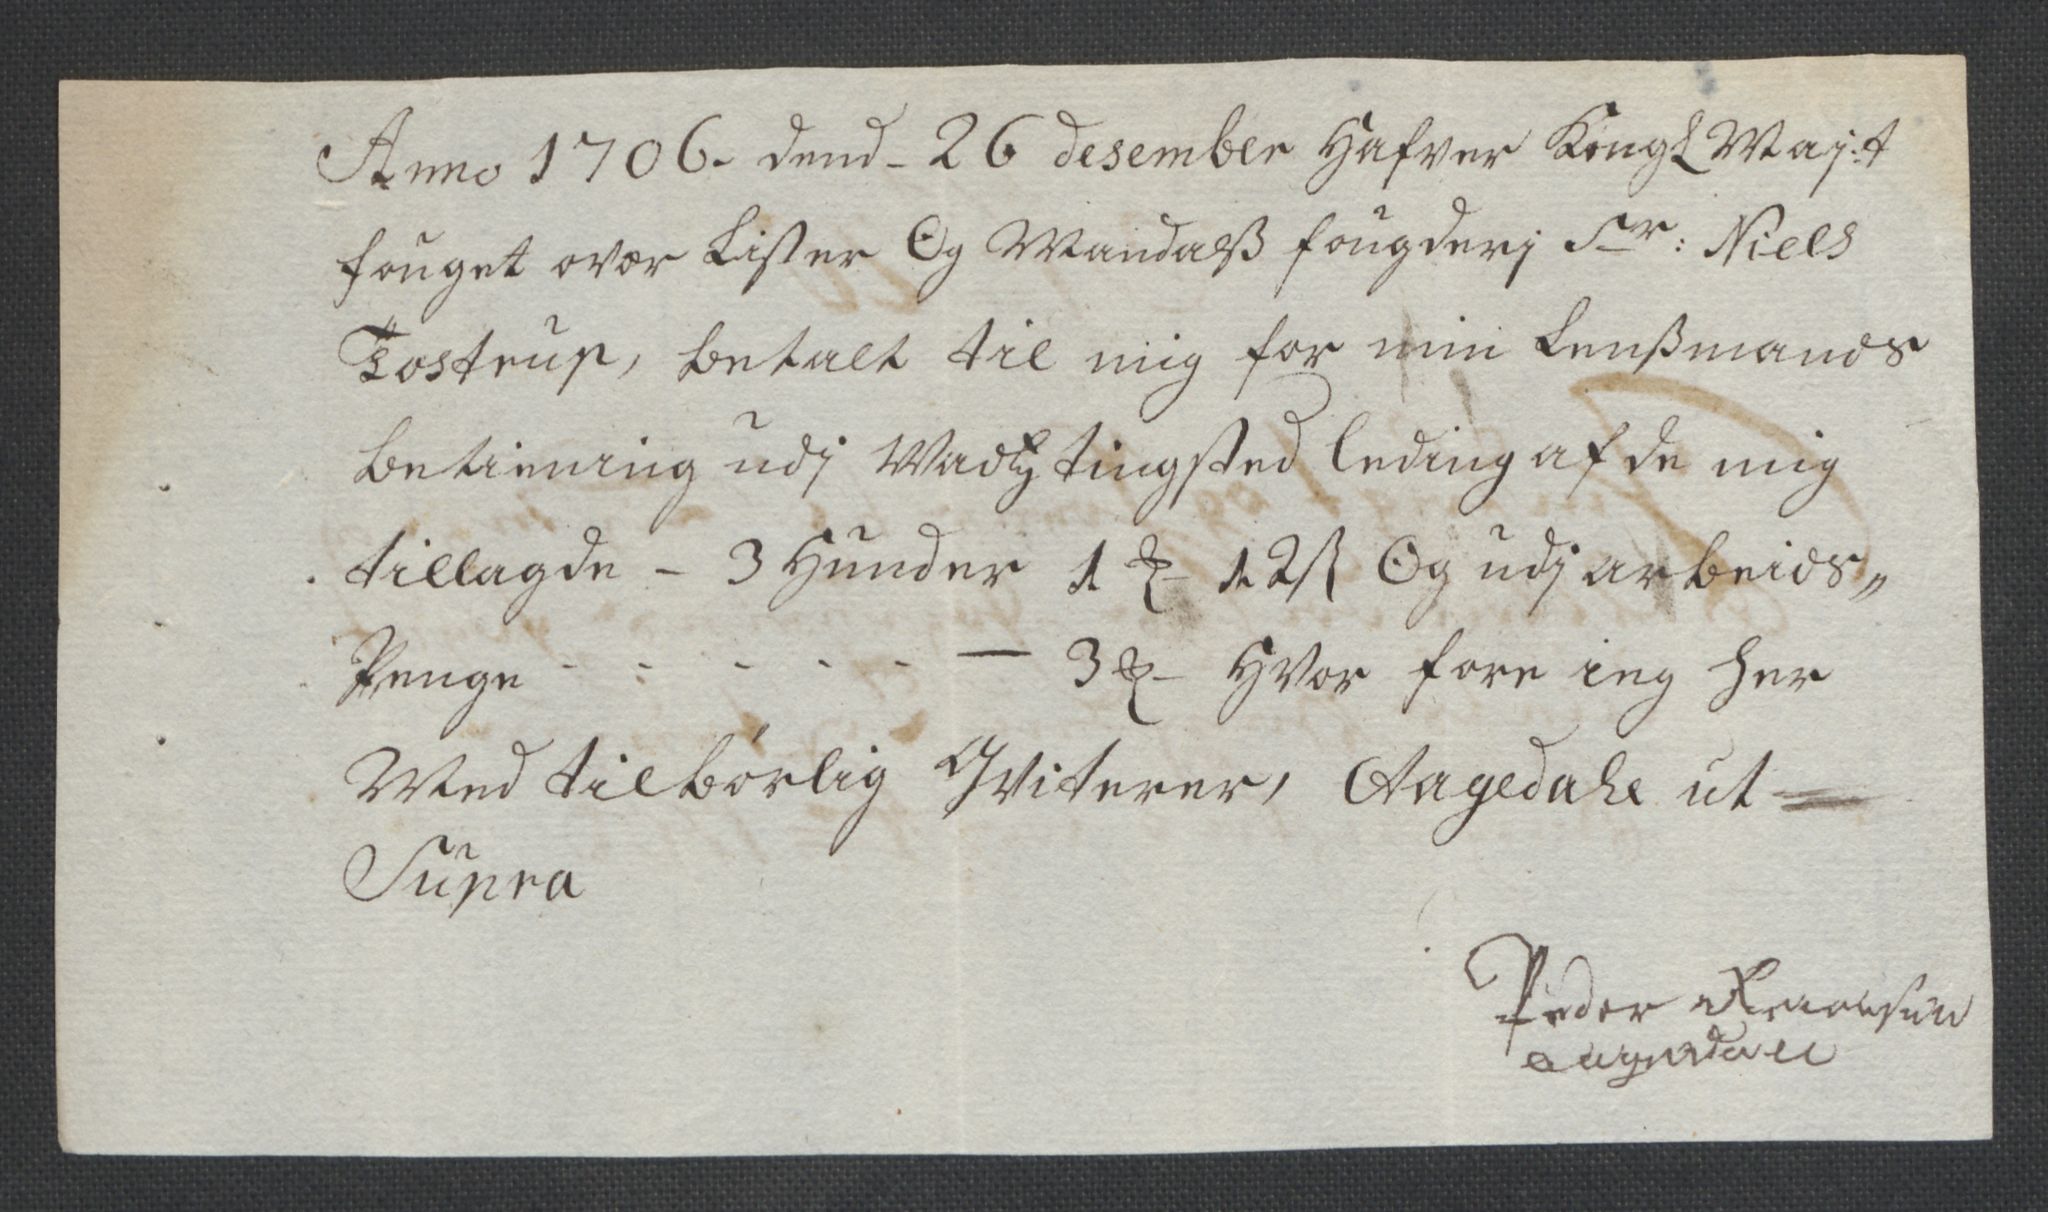 Anno 1706. dend - 26 desember Hafver Kongl Maj:t
fouget ovor Lister Og Mandalß fougderj Sr: Niels
Tostrup, betalt til mig for min Lenßmands
betiening udj tingsted leding af de mig
tillagde - 3 Hunder 1 rd 12 ß Og udj arbeids„
Penge - - - - - — 3 rd Hvor fore ieg her
Med tilbørlig Qviterer, Aagedahl ut —
Supra
Peder